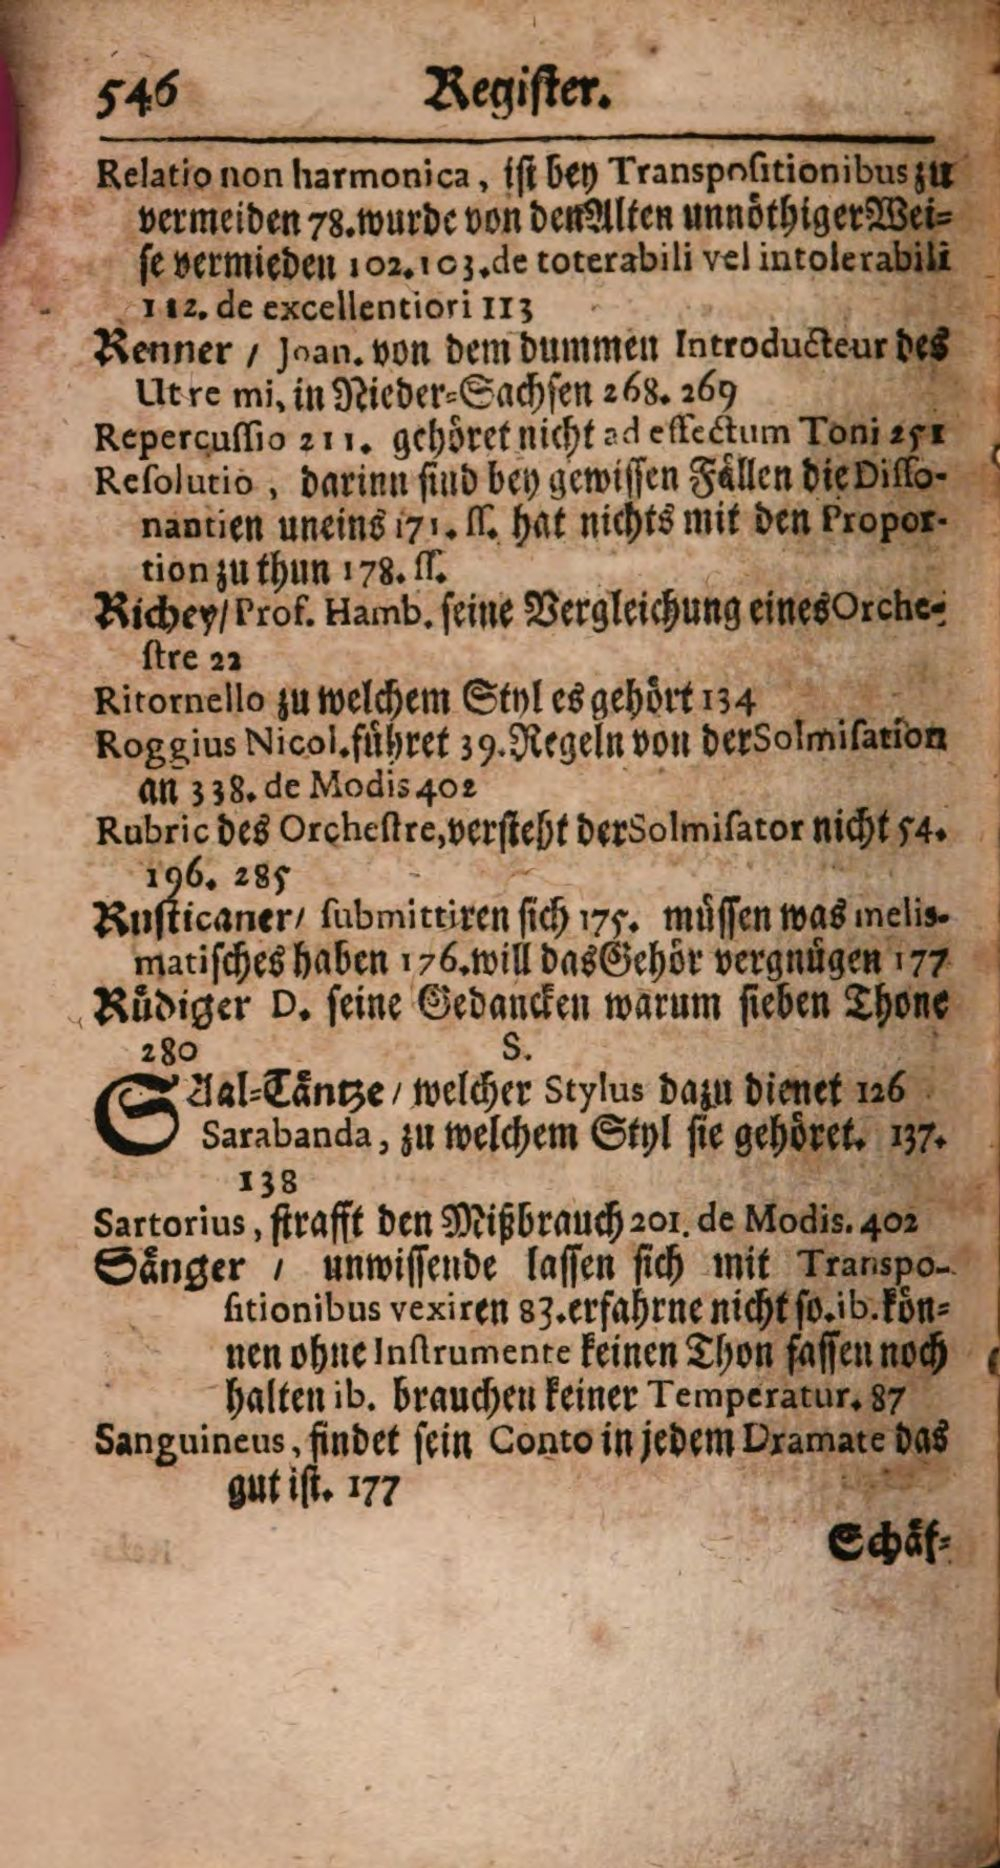 546 Regiſter.
Relatio non harmonica, iſt bey Transpoſitionibus zu
vermeiden 78. wurde von den Alten unnöthiger Wei=
ſe vermieden 102. 103. de toterabili vel intolerabili
112. de excellentiori 113
Renner / Joan. von dem dummen Introducteur des
Ut re mi, in Nieder=Sachſen 268. 269
Repercuſſio 211. gehöret nicht ad effectum Toni 251
Reſolutio, darinn ſind bey gewiſſen Fällen die Diſſo-
nantien uneins 171. ſſ. hat nichts mit den Propor-
tion zu thun 178. ſſ.
Richey / Prof. Hamb. ſeine Vergleichung eines Orche-
ſtre 22
Ritornello zu welchem Styl es gehört 134
Roggius Nicol. führet 39. Regeln von der Solmiſation
an 338. de Modis 402
Rubric des Orcheſtre, verſteht der Solmiſator nicht 54.
196. 285
Ruſticaner / ſubmittiren ſich 175. müſſen was melis-
matiſches haben 176. will das Gehör vergnügen 177
Rüdiger D. ſeine Gedancken warum ſieben Thone
280
S.
SAal=Täntze / welcher Stylus dazu dienet 126
Sarabanda, zu welchem Styl ſie gehöret. 137.
138
Sartorius, ſtrafft den Mißbrauch 201. de Modis. 402
Sänger / unwiſſende laſſen ſich mit Transpo-
ſitionibus vexiren 83. erfahrne nicht ſo. ib. kön=
nen ohne Inſtrumente keinen Thon faſſen noch
halten ib. brauchen keiner Temperatur. 87
Sanguineus, findet ſein Conto in jedem Dramate das
gut iſt. 177
Schäf=